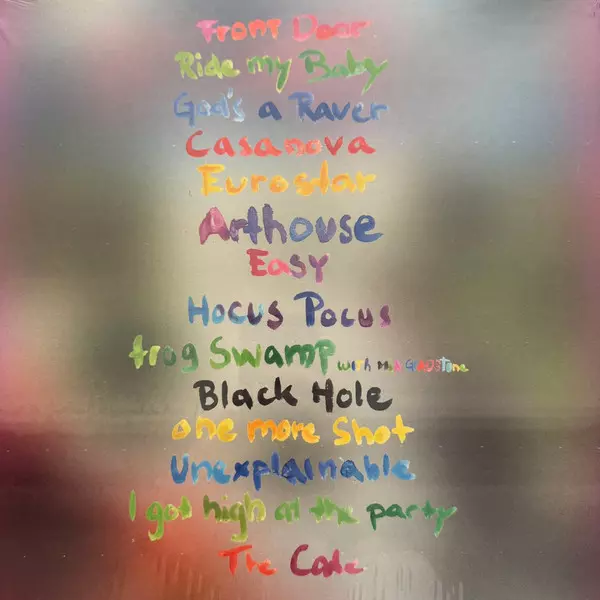 Front Door
Ride my Baby
God's a Raver
Casanova
Eurostar
Arthouse
Easy
Hocus Pocus
frog Swamp with
Black Hole
one more Shot
Unexplainable
I got high at the party
The Code